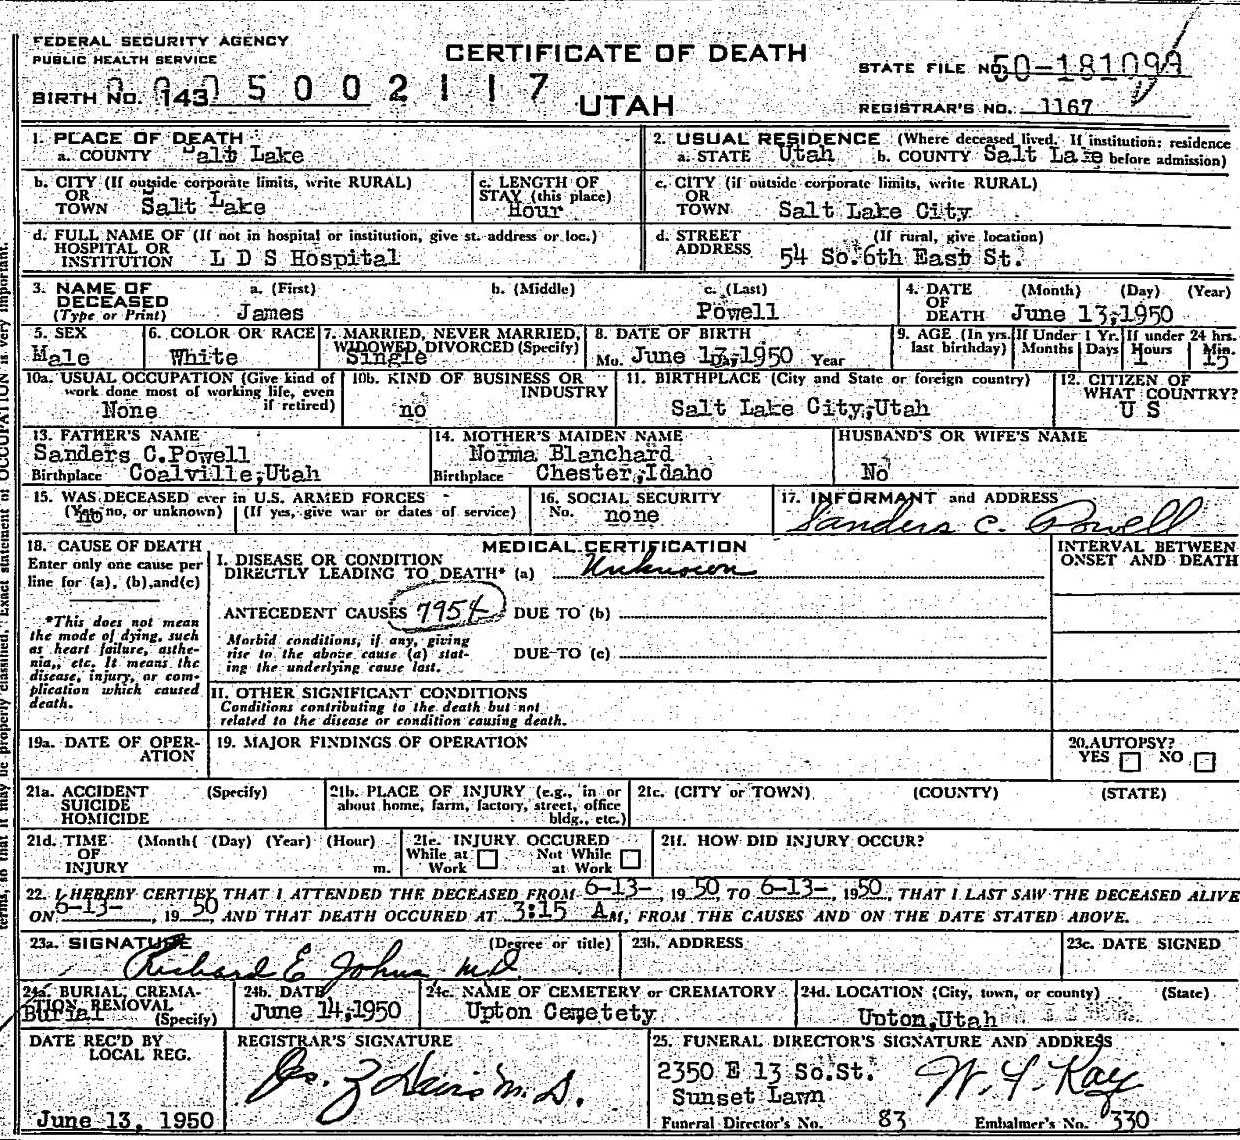 FEDERAL SECURITY AGENCY
PUBLIC HEALTH SERVICE
CERTIFICATE OF DEATH
UTAH
BIRTH NO. 143 0005002117
STATE FILE NO. 50-181099
REGISTRAR'S NO. 1167
1. PLACE OF DEATH
a. COUNTY Salt Lake
2. USUAL RESIDENCE (Where deceased lived. If institution: residence before admission)
a. STATE Utah b. COUNTY Salt Lake
b. CITY (If outside corporate limits, write RURAL)
OR TOWN Salt Lake
c. LENGTH OF STAY (this place)
Hour
c. CITY (if outside corporate limits, write RURAL)
OR TOWN Salt Lake City
d. FULL NAME OF (If not in hospital or institution, give st. address or loc.)
HOSPITAL OR INSTITUTION L D S Hospital
d. STREET ADDRESS (If rural, give location)
54 So.6th East St.
3. NAME OF DECEASED (Type or Print)
a. (First) b. (Middle) c. (Last)
James Powell
4. DATE OF DEATH (Month) (Day) (Year)
June 13,1950
5. SEX
Male
6. COLOR OR RACE
White
7. MARRIED, NEVER MARRIED, WIDOWED, DIVORCED (Specify)
Single
8. DATE OF BIRTH
Mo. June 13,1950 Day Year
9. AGE (In yrs. last birthday)
If Under 1 Yr. Months Days
If under 24 hrs. Hours Min.
1 15
10a. USUAL OCCUPATION (Give kind of work done most of working life, even if retired)
None
10b. KIND OF BUSINESS OR INDUSTRY
no
11. BIRTHPLACE (City and State or foreign country)
Salt Lake City,Utah
12. CITIZEN OF WHAT COUNTRY?
U S
13. FATHER'S NAME
Sanders C.Powell
Birthplace Coalville,Utah
14. MOTHER'S MAIDEN NAME
Norma Blanchard
Birthplace Chester,Idaho
HUSBAND'S OR WIFE'S NAME
No
15. WAS DECEASED ever in U.S. ARMED FORCES
(Yes, no, or unknown) (If yes, give war or dates of service)
no
16. SOCIAL SECURITY
No. none
17. INFORMANT and ADDRESS
Sanders C. Powell
18. CAUSE OF DEATH
Enter only one cause per line for (a), (b), and (c)
*This does not mean the mode of dying, such as heart failure, asthenia, etc. It means the disease, injury, or complication which caused death.
MEDICAL CERTIFICATION
I. DISEASE OR CONDITION
DIRECTLY LEADING TO DEATH* (a) Unknown
ANTECEDENT CAUSES 7954 DUE TO (b)
Morbid conditions, if any, giving rise to the above cause (a) stating the underlying cause last.
DUE TO (c)
II. OTHER SIGNIFICANT CONDITIONS
Conditions contributing to the death but not related to the disease or condition causing death.
INTERVAL BETWEEN ONSET AND DEATH
19a. DATE OF OPERATION
19. MAJOR FINDINGS OF OPERATION
20. AUTOPSY?
YES NO
21a. ACCIDENT SUICIDE HOMICIDE (Specify)
21b. PLACE OF INJURY (e.g., in or about home, farm, factory, street, office bldg., etc.)
21c. (CITY or TOWN) (COUNTY) (STATE)
21d. TIME OF INJURY (Month( (Day) (Year) (Hour) m.
21e. INJURY OCCURED
While at Work Not While at Work
21f. HOW DID INJURY OCCUR?
22. I HEREBY CERTIFY THAT I ATTENDED THE DECEASED FROM 6-13-, 1950, TO 6-13-, 1950, THAT I LAST SAW THE DECEASED ALIVE
ON 6-13-, 1950 AND THAT DEATH OCCURED AT 3:15 AM, FROM THE CAUSES AND ON THE DATE STATED ABOVE.
23a. SIGNATURE (Degree or title)
Richard E Johns M.D.
23b. ADDRESS
23c. DATE SIGNED
24a. BURIAL, CREMATION, REMOVAL (Specify)
Burial
24b. DATE
June 14,1950
24c. NAME OF CEMETERY or CREMATORY
Upton Cemetety
24d. LOCATION (City, town, or county) (State)
Upton,Utah
DATE REC'D BY LOCAL REG.
June 13, 1950
REGISTRAR'S SIGNATURE
25. FUNERAL DIRECTOR'S SIGNATURE AND ADDRESS
2350 E 13 So.St.
Sunset Lawn
Funeral Director's No. 83 Embalmer's No. 330